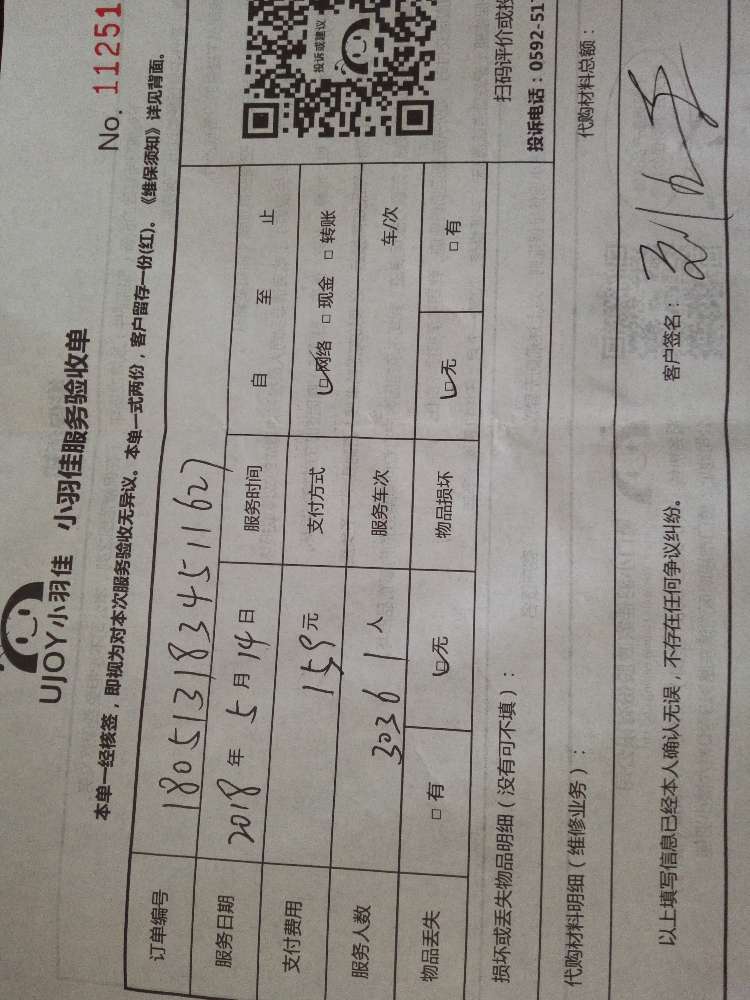 UJOY小羽佳 小羽佳服务验收单
No. 11251
本单一经核签，即视为对本次服务验收无异议。本单一式两份，客户留存一份(红)。《维保须知》详见背面。
订单编号 1805131834511627
服务日期 2018年5月14日 服务时间 自 至 止
支付费用 159元 支付方式 ☑网络 □现金 □转账
服务人数 30361人 服务车次 车/次
物品丢失 □有 ☑无 物品损坏 ☑无 □有
投诉或建议
扫码评价或投
投诉电话：0592-517
损坏或丢失物品明细（没有可不填）：
代购材料明细（维修业务）： 代购材料总额：
以上填写信息已经本人确认无误，不存在任何争议纠纷。 客户签名：